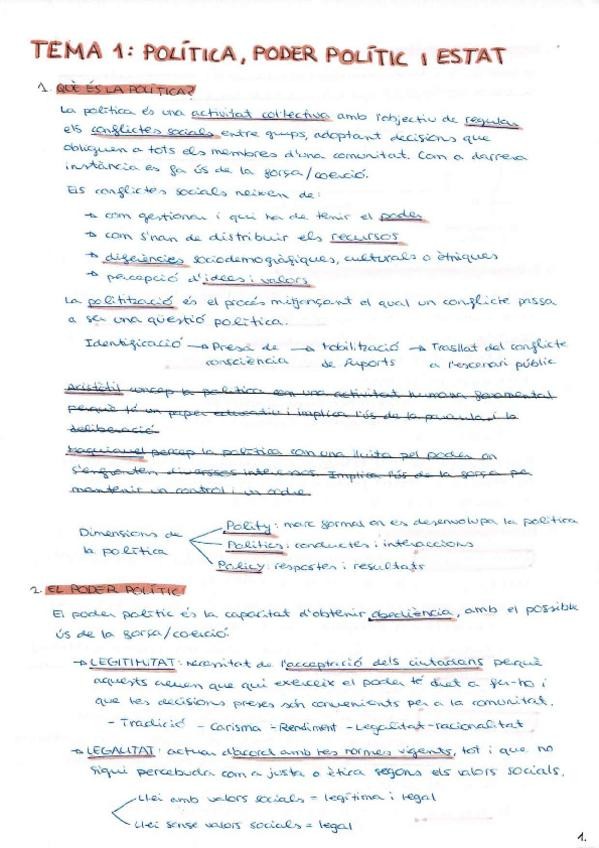 TEMA 1: POLÍTICA, PODER POLÍTIC I ESTAT
1. QUÈ ÉS LA POLÍTICA?
La política és una activitat col·lectiva amb l'objectiu de regular
els conflictes socials entre grups, adoptant decisions que
obliguen a tots els membres d'una comunitat. Com a darrera
instància es fa ús de la força/coerció.
Els conflictes socials neixen de:
→ com gestionar i qui ha de tenir el poder
→ com s'han de distribuir els recursos
→ diferències sociodemogràfiques, culturals o ètniques
→ percepció d'idees i valors
La polització és el procés mitjançant el qual un conflicte passa
a ser una qüestió política.
Identificació → Presa de → Mobilització → Trasllat del conflicte
consciència de suports a l'escenari públic
Aristòtil concep la política com una activitat humana fonamental
perquè té un paper educatiu i implica l'ús de la paraula i la
deliberació
Maquiavel percep la política com una lluita pel poder on
s'enfronten diversos interessos. Implica l'ús de la força per
mantenir un control i un ordre
Polity: marc formal on es desenvolupa la política
Dimensions de
Politics: conductes i interaccions
la política
Policy: respostes i resultats
2. EL PODER POLÍTIC
El poder polític és la capacitat d'obtenir obediència, amb el possible
ús de la força/coerció.
→ LEGITIMITAT: necessitat de l'acceptació dels ciutadans perquè
aquests creuen que qui exerceix el poder té dret a fer-ho i
que les decisions preses són convenients per a la comunitat.
- Tradició - Carisma - Rendiment - Legalitat-racionalitat
→ LEGALITAT: actuar d'acord amb les normes vigents, tot i que no
sigui percebuda com a justa o ètica segons els valors socials.
Llei amb valors socials = legítima i legal
Llei sense valors socials = legal
1.